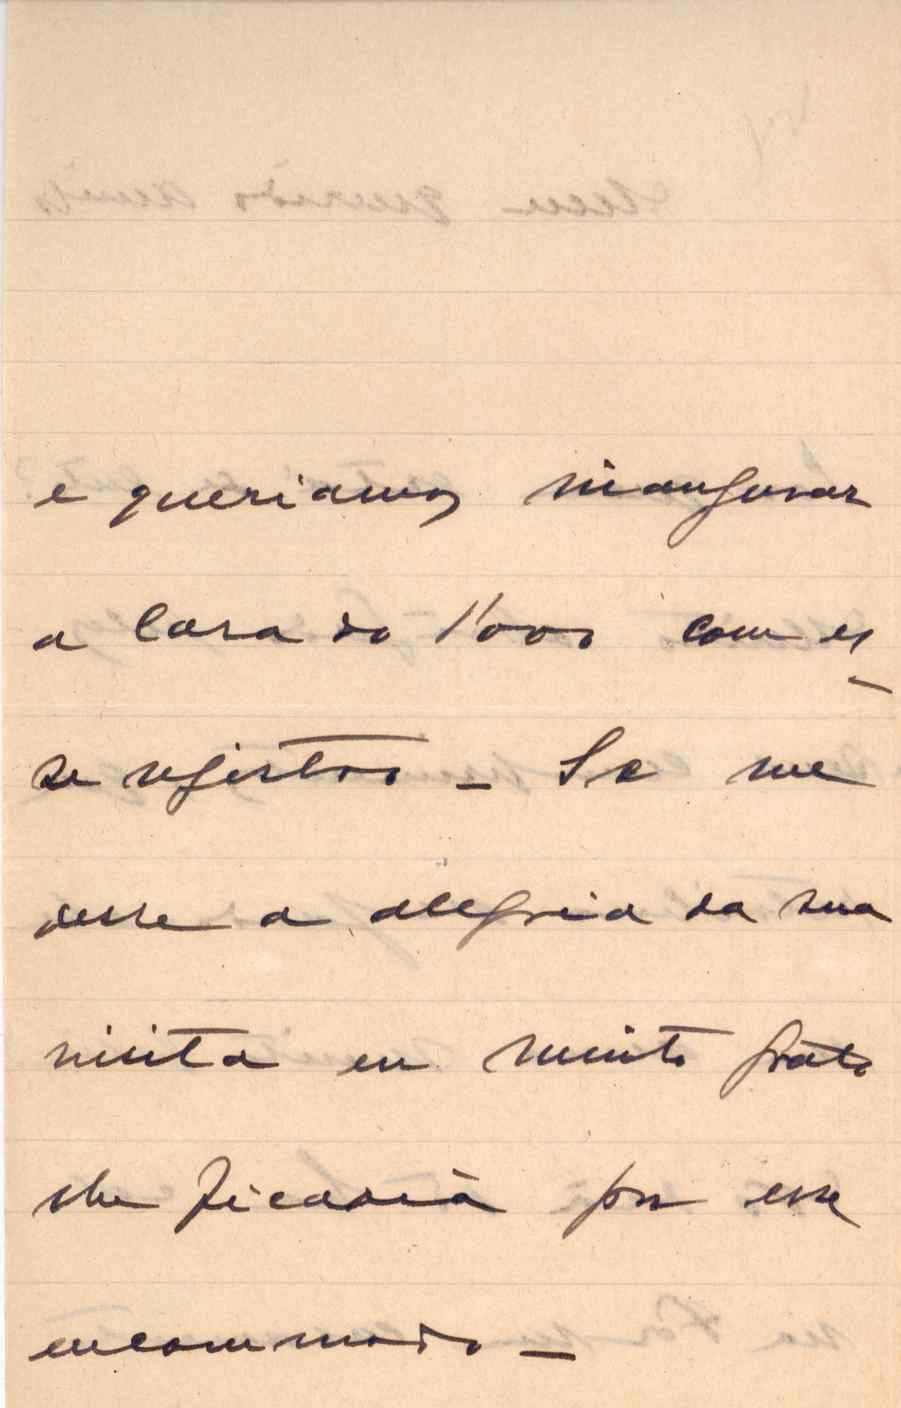 e queriamos inaugurar
a Casa do Povo com es-
se registro - Se me
desse a alegria da sua
visita eu muito grato
lhe ficaria por esse
encommodo -